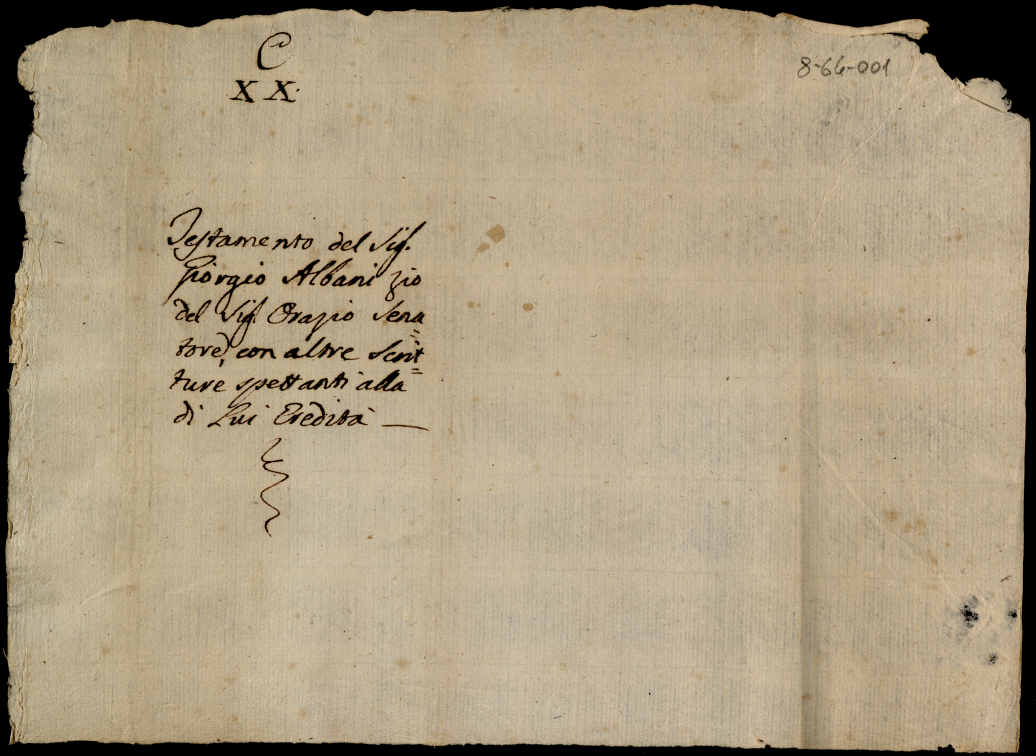 C
XX.
8-66-001
Testamento del Sig.
Giorgio Albani Zio
del Sig. Orazio Sena
tore, con altre Scrit=
ture spettanti alla
di Lui Eredità —